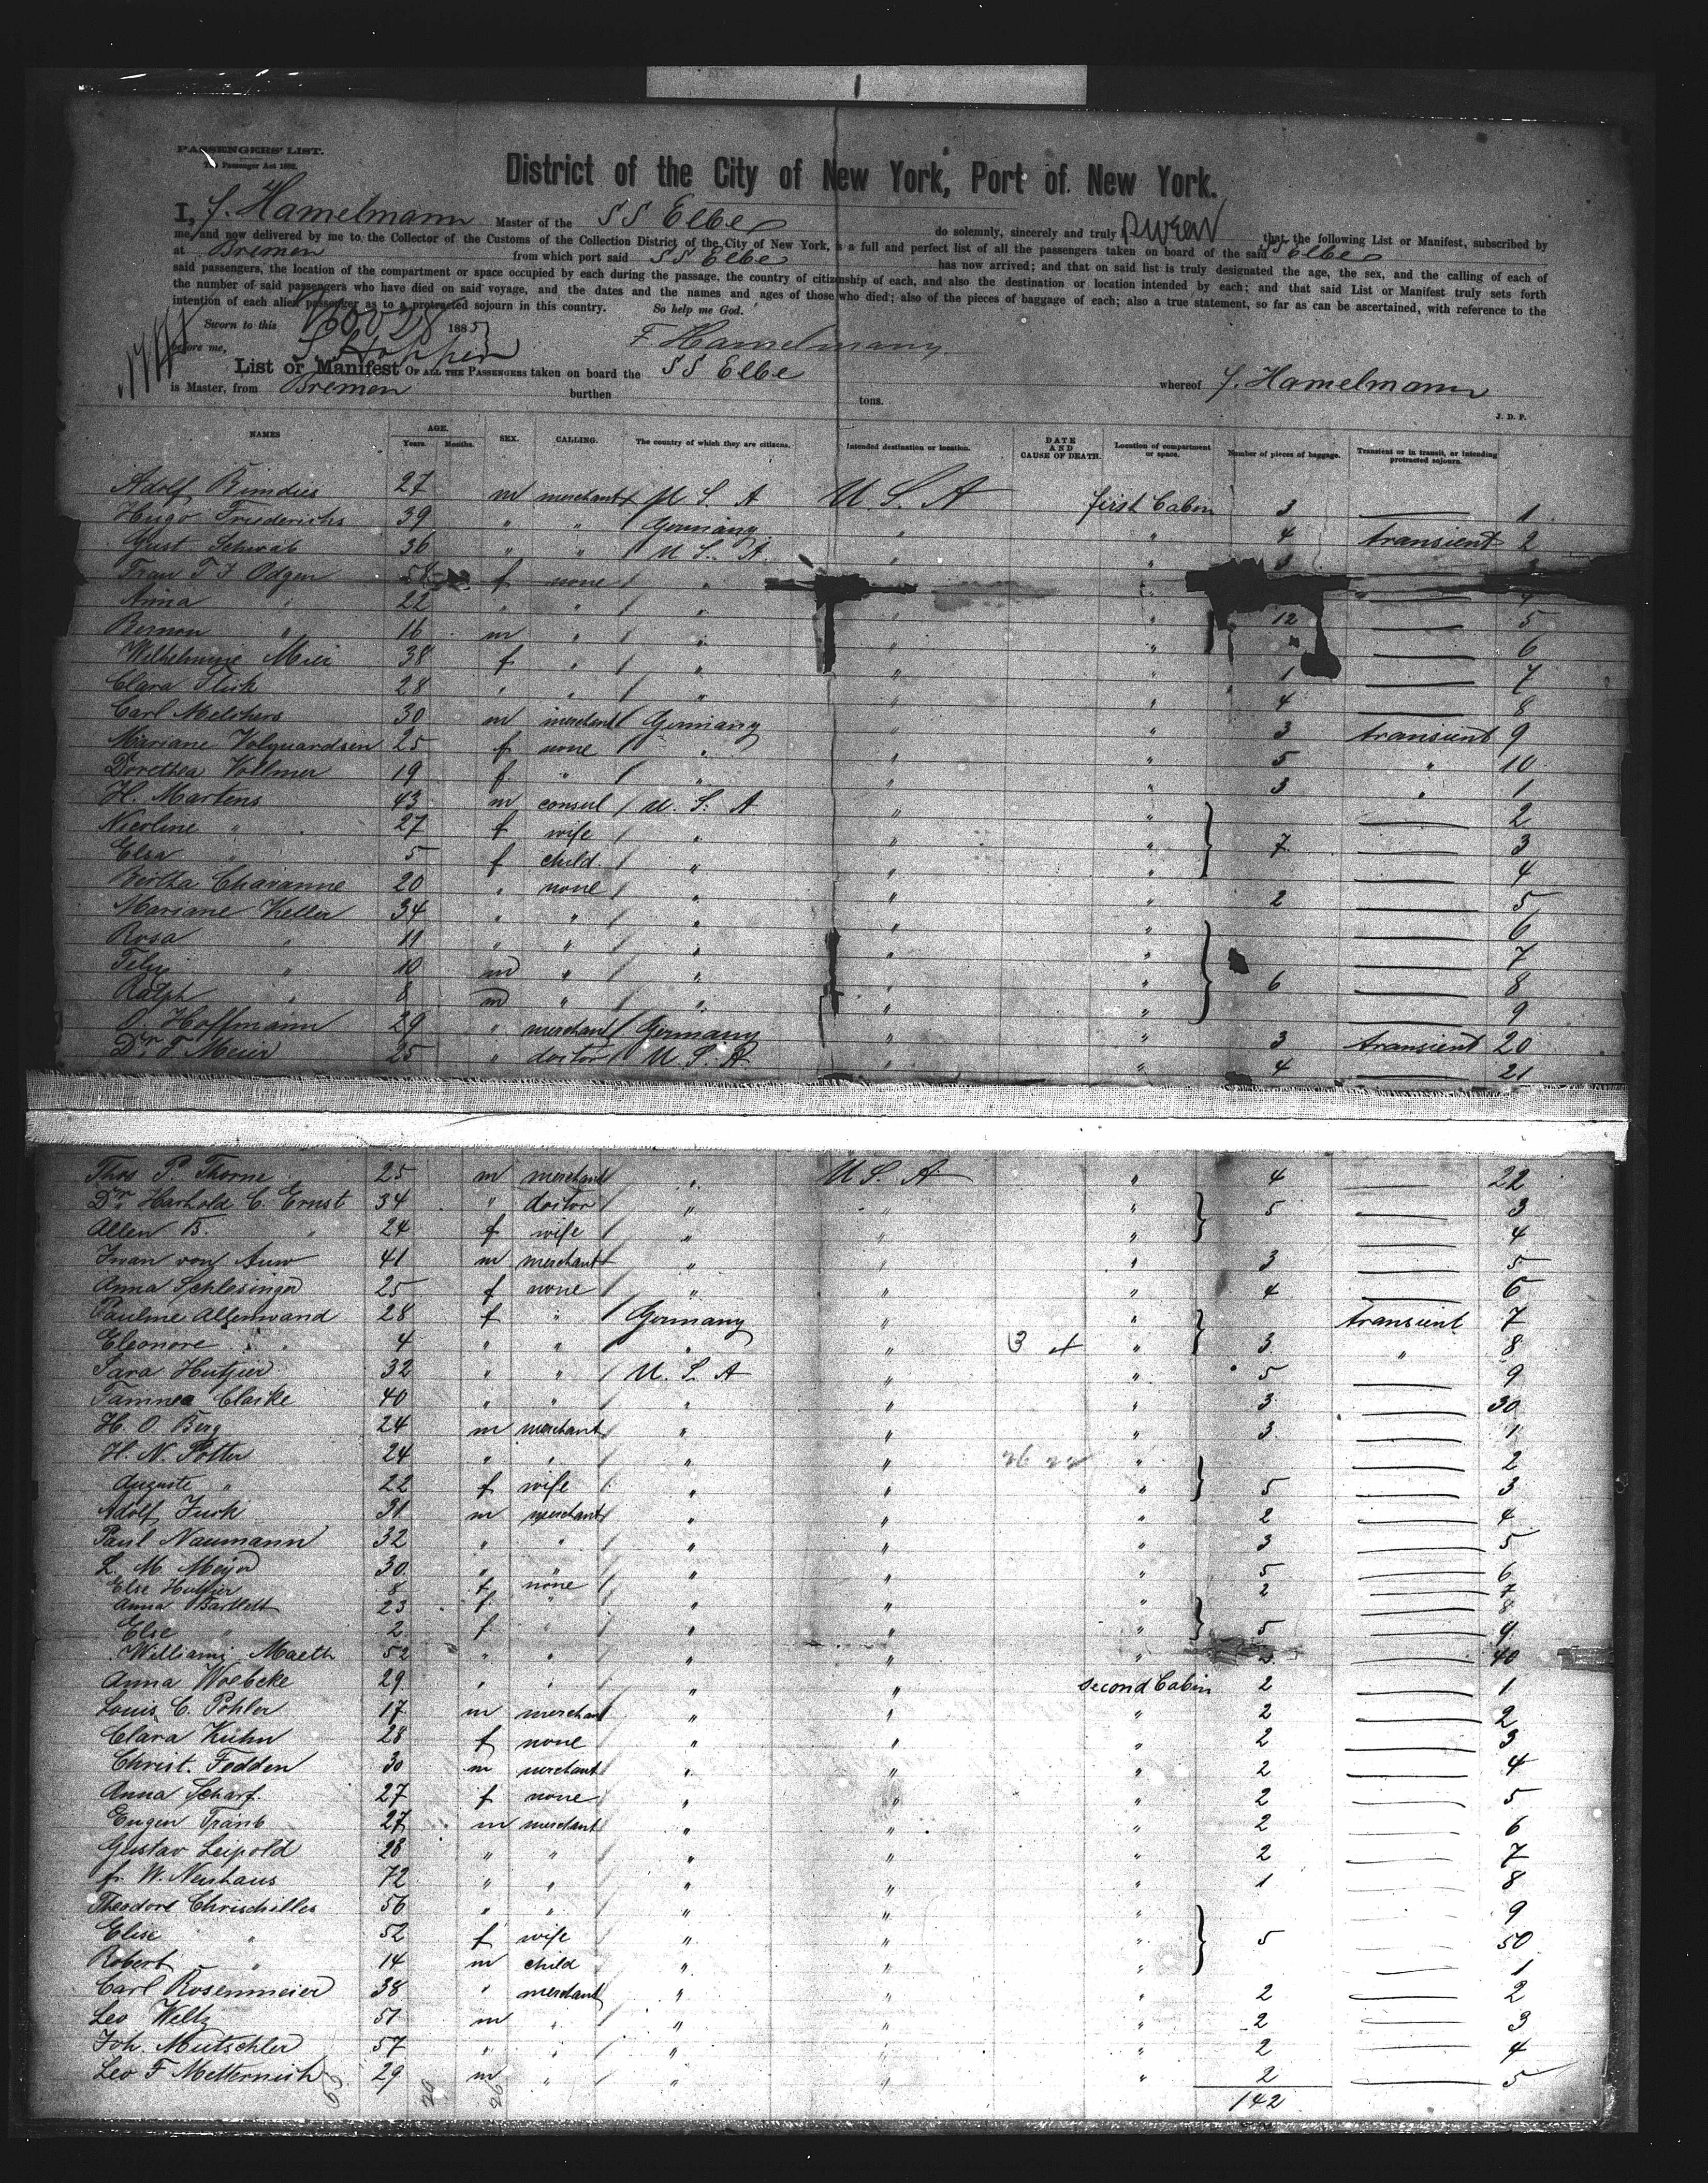 PASSENGERS' LIST.
Passenger Act 1882.
District of the City of New York, Port of New York.
I, F. Hamelmann Master of the SS Elbe do solemnly, sincerely and truly swear that the following List or Manifest, subscribed by
me, and now delivered by me to the Collector of the Customs of the Collection District of the City of New York, is a full and perfect list of all the passengers taken on board of the said SS Elbe
at Bremen from which port said SS Elbe has now arrived; and that on said list is truly designated the age, the sex, and the calling of each of
said passengers, the location of the compartment or space occupied by each during the passage, the country of citizenship of each, and also the destination or location intended by each; and that said List or Manifest truly sets forth
the number of said passengers who have died on said voyage, and the dates and the names and ages of those who died; also of the pieces of baggage of each; also a true statement, so far as can be ascertained, with reference to the
intention of each alien passenger as to a protracted sojourn in this country. So help me God.
Sworn to this Nov 28 1885 F Hamelmann
before me,
List or Manifest OF ALL THE PASSENGERS taken on board the SS Elbe whereof F. Hamelmann
is Master, from Bremen burthen tons.
J. D. P.
NAMES AGE. Years. Months. SEX. CALLING. The country of which they are citizens. Intended destination or location. DATE AND CAUSE OF DEATH. Location of compartment or space. Number of pieces of baggage. Transient or in transit, or intending protracted sojourn.
Adolf 27 m merchant U. S. A U. S. A first Cabin 3 — 1
Hugo Friederichs 39 " " Germany " " 4 transient 2
Gust Schwab 36 " " U. S. A " " 3
Frau T J Odgen f none " " 4
Anna " 22 " " " " " 12 — 5
Bernon " 16 m " " " " — 6
Wilhelmine 38 f " " " " 1 — 7
Clara 28 " " " " " 4 — 8
Carl Melchers 30 m merchant Germany " " 3 transient 9
Mariane Volquardsen 25 f none " " " 5 " 10
Dorethea Vollmer 19 f " " " " 3 " 1
H. Martens 43 m consul U. S. A " " — 2
Nicoline " 27 f wife " " " 7 — 3
Elsa " 5 f child " " " — 4
Bertha Chavanne 20 " none " " " 2 — 5
Mariane Keller 34 " " " " " — 6
Rosa " 11 " " " " " — 7
" 10 m " " " " 6 — 8
Ralph " 8 m " " " " — 9
O. Hoffmann 29 " merchant Germany " " 3 transient 20
Dr. F Meier 25 " doctor U. S. A. " " 4 — 21
Thos P. Thorne 25 m merchant " U S. A " 4 — 22
Dr. Harhold C. Ernst 34 " doctor " " " 5 — 3
Allen B. " 24 f wife " " " — 4
Iwan von Auw 41 m merchant " " " 3 — 5
Anna Schlesinger 25 f none " " " 4 — 6
Pauline Allenwand 28 f " Germany " " transient 7
Eleonore " 4 " " " " 3 " 3 " 8
Sara Hutzler 32 " " U. S. A " " 5 — 9
Clarke 40 " " " " " 3 — 30
H. O. Berg 24 m merchant " " " 3 — 1
H. N. Potter 24 " " " " " — 2
Auguste " 22 f wife " " " 5 — 3
Adolf 31 m merchant " " " 2 — 4
Paul Naumann 32 " " " " " 3 — 5
L. M. Meyer 30 " " " " " 5 — 6
Else Hutzler 8 f none " " 2 — 7
Anna Bartlett 23 f " " " " — 8
Else " 2 f " " " " 5 — 9
52 " " " " " — 40
Anna Woebcke 29 " " " " second Cabin 2 — 1
Louis C. Pohler 17 m merchant " " " 2 — 2
Clara Kuhn 28 f none " " " 2 — 3
Christ. Fedden 30 m merchant " " " 2 — 4
Anna Scharf. 27 f none " " " 2 — 5
Eugen Traub 27 m merchant " " " 2 — 6
Gustav Leipold 28 " " " " " 2 — 7
fr. W. Neuhaus 72 " " " " " 1 — 8
Theodore Chrischilles 56 " " " " " — 9
Elise " 52 f wife " " " 5 — 50
Robert " 14 m child " " " — 1
Carl Rosenmeier 38 " merchant " " " 2 — 2
Leo Weltz 51 m " " " " 2 — 3
Joh. Mutschler 57 " " " " " 2 — 4
Leo F Metternich 29 m " " " " 2 — 5
142